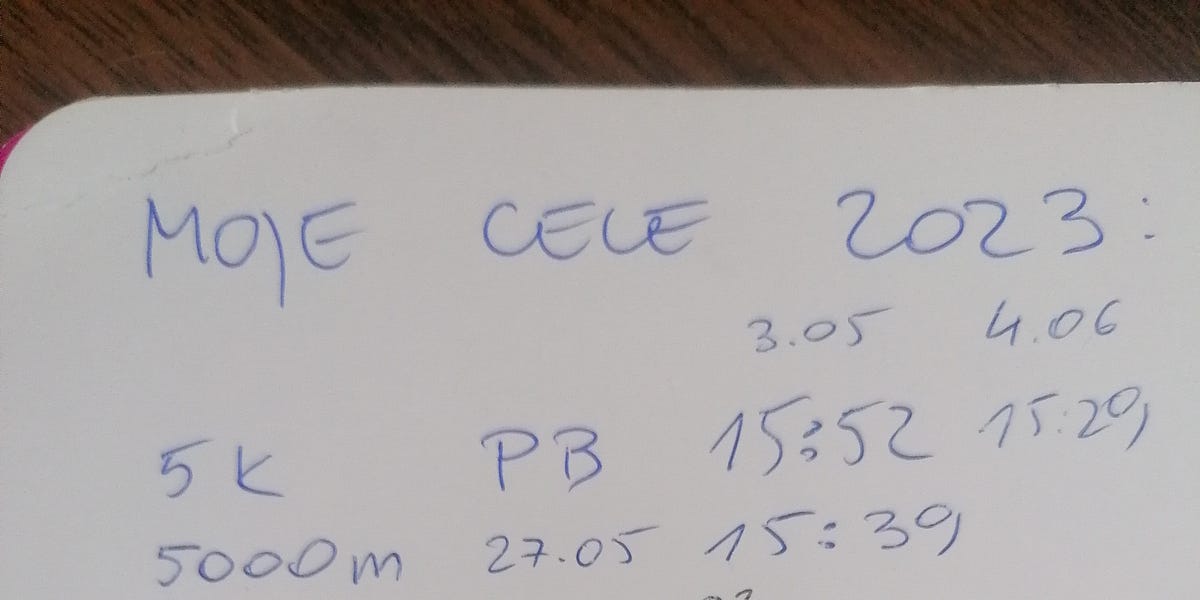 MOJE CELE 2023:
3.05 4.06
5K PB 15:52 15:29
5000m 27.05 15:39